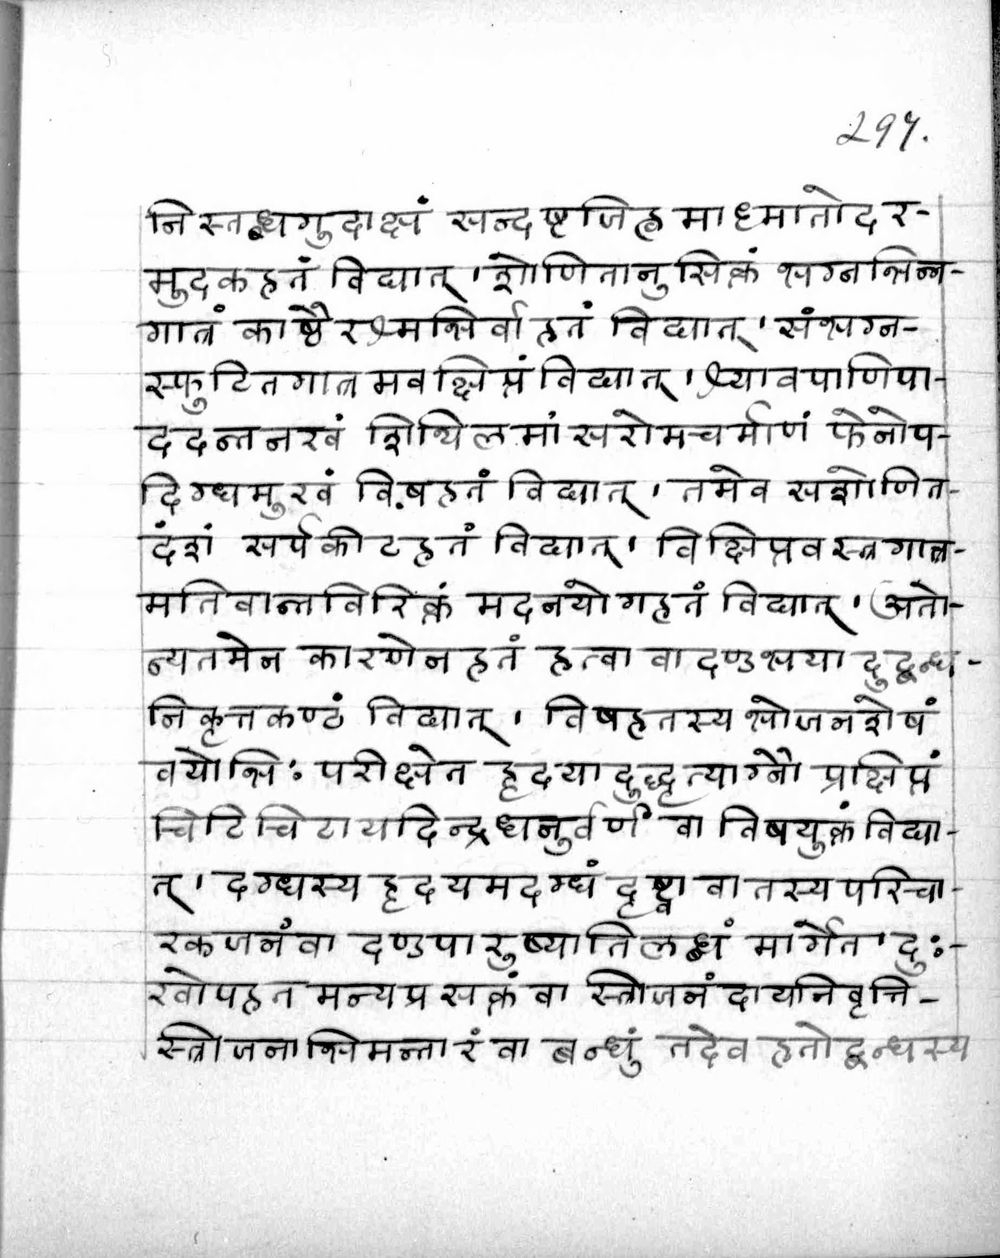 297.
निस्तब्धगुदाक्षं सन्दष्टजिह्वमाध्मातोदर-
मुदकहतं विद्यात् । शोणितानुसिक्तं भग्नभिन्न-
गात्रं काष्ठैरश्मभिर्वा हतं विद्यात् । संभग्न-
स्फुटितगात्रमवक्षिप्तं विद्यात् । श्यावपाणिपा-
ददन्तनखं शिथिलमांसरोमचर्माणं फेनोप-
दिग्धमुखं विषहतं विद्यात् । तमेव सशोणित-
दंशं सर्पकीटहतं विद्यात् । विक्षिप्तवस्त्रगात्र-
मतिवान्तविरिक्तं मदनयोगहतं विद्यात् । अतो-
न्यतमेन कारणेन हतं हत्वा वा दण्डभयादुद्बन्ध-
निकृत्तकण्ठं विद्यात् । विषहतस्य भोजनशेषं
वयोभिः परीक्षेत हृदयादुद्धृत्याग्नौ प्रक्षिप्तं
चिटिचिटायदिन्द्रधनुर्वर्णं वा विषयुक्तं विद्या-
त् । दग्धस्य हृदयमदग्धं दृष्ट्वा वा तस्य परिचा-
रकजनं वा दण्डपारुष्यातिलब्धं मार्गेत । दुः-
खोपहतमन्यप्रसक्तं वा स्त्रीजनं दायनिवृत्ति-
स्त्रीजनाभिमन्तारं वा बन्धुं तदेव हतोद्बन्धस्य